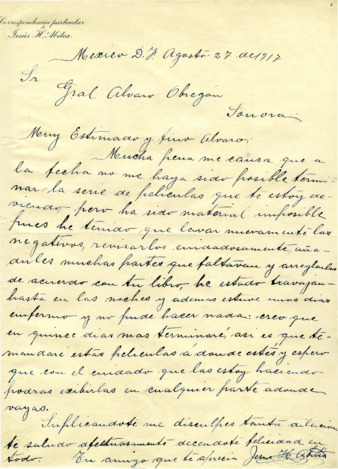 Correspondencia particular
de
Jesús H. Abitia.
Mexico D.F. Agosto 27 de 1917
Sr
Gral Alvaro Obregon
Sonora
Muy Estimado y fino Alvaro,
Mucha pena me causa que a
la fecha no me haya sido posible termi-
nar la serie de peliculas que te estoy de-
viendo pero ha sido material imposible
pues he tenido que lavar nuevamente las
negativos, revisarlos cuidadosamente, aña-
dirles muchas partes que faltavan y arreglarlas
de acuerdo con tu libro, he estado travajan-
hasta en las noches y ademas estuve unos dias
enfermo y no pude hacer nada: creo que
en quince dias mas terminaré, asi es que te
mandaré estas peliculas a donde estés y espero
que con el cuidado que las estoy haciendo
podras exibirlas en cualquier parte adonde
vayas.
Suplicandote me disculpes tanta dilacion
te saludo afectuosamente deceandote felicidad en
todo. Tu amigo que te aprecia Jesus H. Abitia